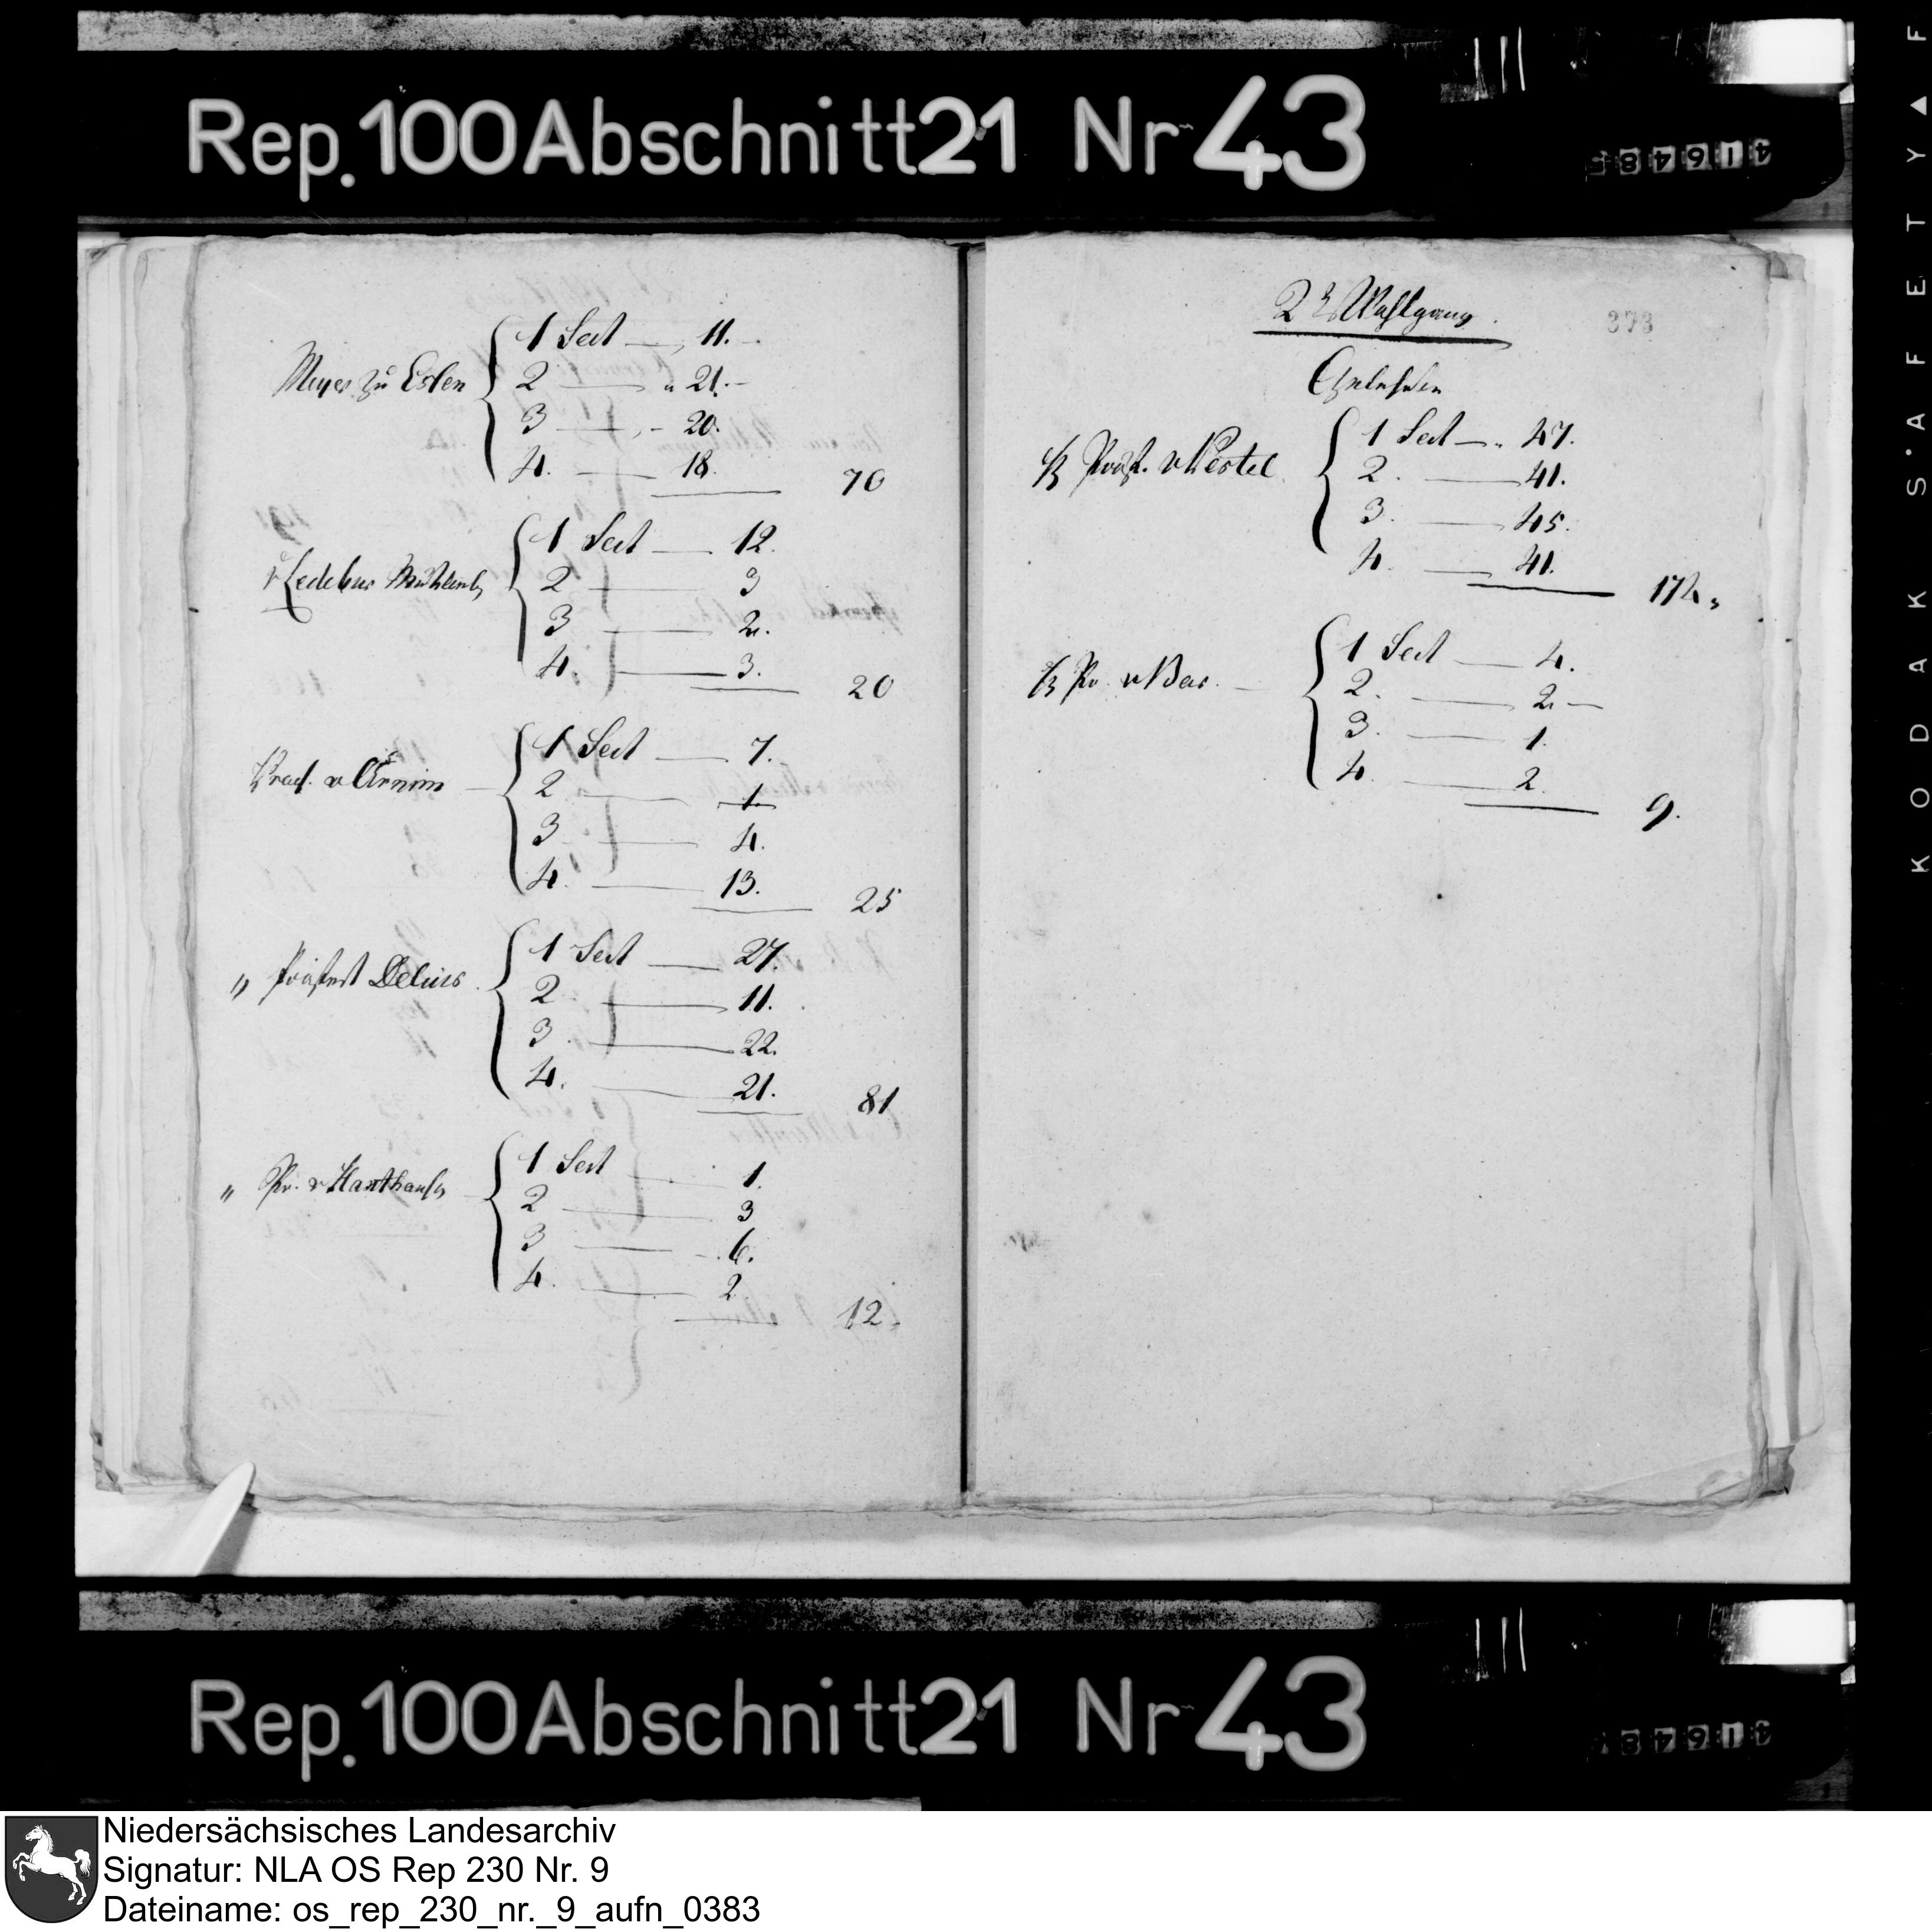 Rep. 100 Abschnitt 21 Nr 43
Meyer zu Eslen
1 Sect — 11.
2 — 21.
3 — 20.
4. — 18.
70
v Ledebur Mühlenb
1 Sect — 12.
2 — 3
3 — 2.
4. — 3.
20
v Arnim
1 Sect — 7.
2 — 1
3 — 4.
4. — 13.
25
" Präfect Delius
1 Sect — 27.
2 — 11.
3. — 22.
4. — 21.
81
" Pr. v Haxthausen
1 Sect — 1.
2 — 3
3 — 6.
4. — 2
12
373
2r Wahlgang.
Präf. v Pestel
1 Sect — 47.
2. — 41.
3. — 45.
4. — 41.
174
Pr v Bar.
1 Sect — 4.
2. — 2. —
3. — 1.
4. — 2.
9.
KODAK S·A F E T Y ▲ F
Rep. 100 Abschnitt 21 Nr 43
Niedersächsisches Landesarchiv
Signatur: NLA OS Rep 230 Nr. 9
Dateiname: os_rep_230_nr._9_aufn_0383